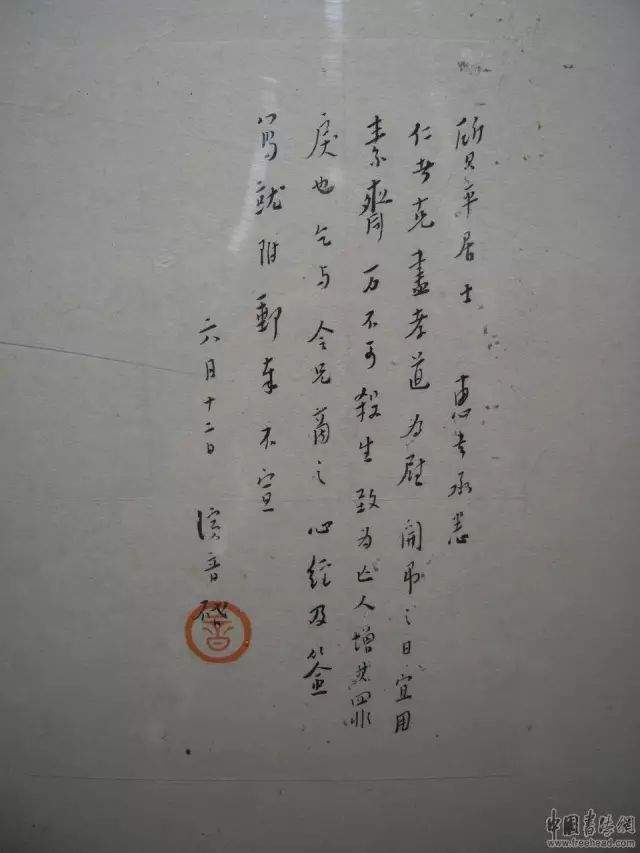 質平居士　惠书承悉
仁者克盡孝道为慰　開弔之日宜用
素齋万不可殺生致为亡人增其罪
戾也乞与　令兄商之　心經及签
寫就附郵奉不宣
六月十二日　演音啟
音
中國書法網
www.freehead.com